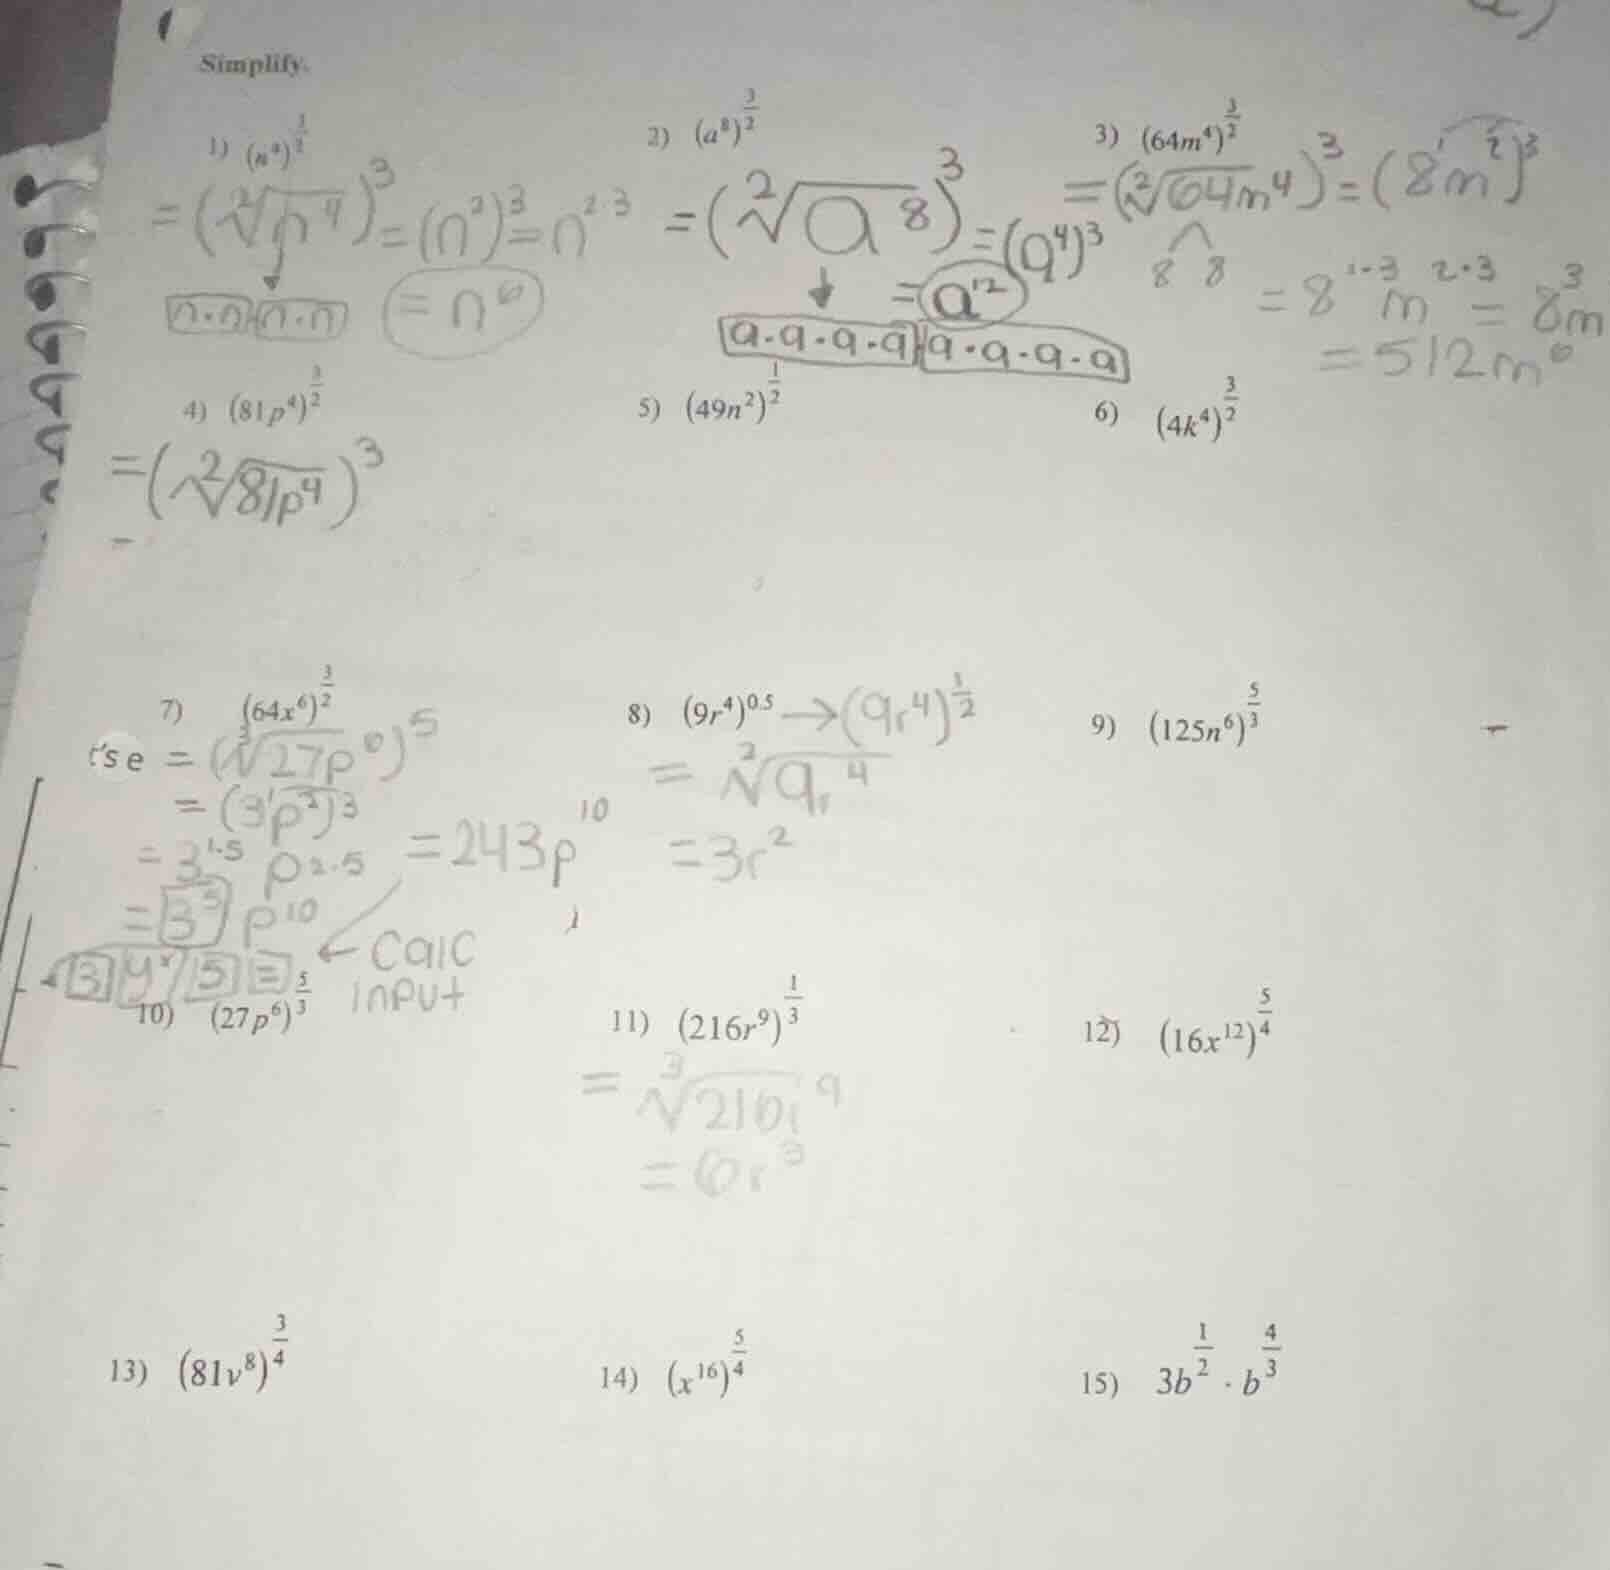 Simplify.
1) (n⁴)^(3/2)
= (²√n⁴)³ = (n²)³ = n^(2·3)
n·n·n·n
= n⁶
2) (a⁸)^(3/2)
= (²√a⁸)³ = (a⁴)³
= a¹²
a·a·a·a·a·a·a·a
3) (64m⁴)^(3/2)
= (²√64m⁴)³ = (8¹m²)³
8 8
= 8^(1·3) m^(2·3) = 8³m
= 512m⁶
4) (81p⁴)^(3/2)
= (²√81p⁴)³
5) (49n²)^(1/2)
6) (4k⁴)^(3/2)
7) (64x⁶)^(3/2)
t's e = (³√27p⁶)⁵
= (3¹p²)³
= 3^(1·5) p^(2·5) = 243p¹⁰
= 3⁵ p¹⁰
3 yˣ 5 = ← calc input
8) (9r⁴)^0.5 → (9r⁴)^(1/2)
= ²√9r⁴
= 3r²
9) (125n⁶)^(5/3)
10) (27p⁶)^(5/3)
11) (216r⁹)^(1/3)
= ³√216r⁹
= 6r³
12) (16x¹²)^(5/4)
13) (81v⁸)^(3/4)
14) (x¹⁶)^(5/4)
15) 3b^(1/2) · b^(4/3)